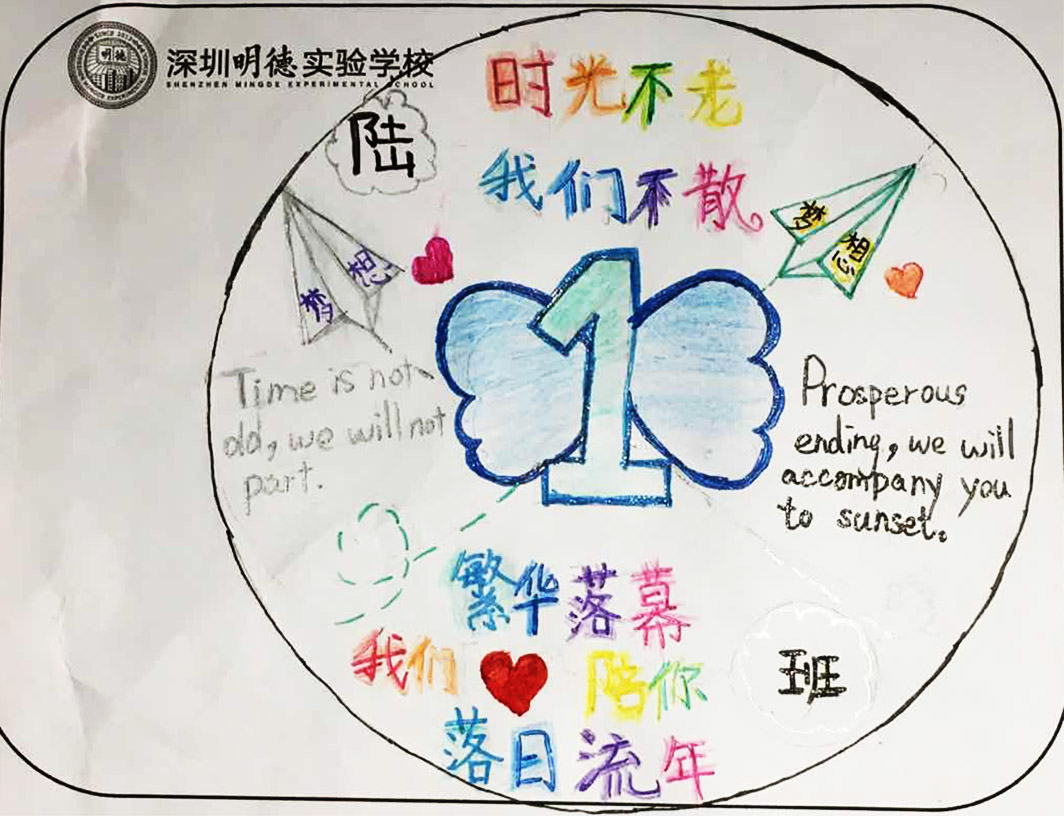 明德
深圳明德实验学校
SHENZHEN MINGDE EXPERIMENTAL SCHOOL
陆
时光不老
我们不散。
梦想
梦想
1
Time is not
old, we will not
part.
Prosperous
ending, we will
accompany you
to sunset.
繁华落幕
我们 陪你
落日流年
班